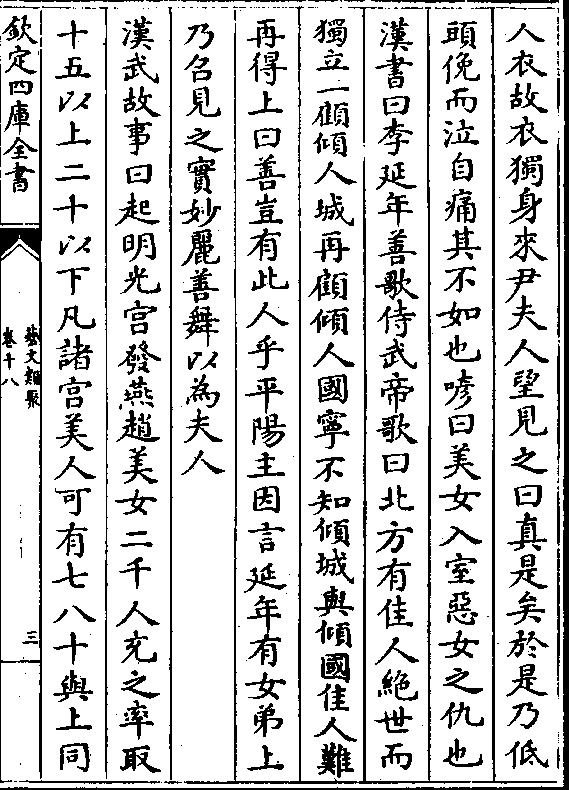 人衣故衣獨身來尹夫人望見之曰真是矣於是乃低
頭俛而泣自痛其不如也喭曰美女入室惡女之仇也
漢書曰李延年善歌侍武帝歌曰北方有佳人絶世而
獨立一顧傾人城再顧傾人國寧不知傾城與傾國佳人難
再得上曰善豈有此人乎平陽主因言延年有女弟上
乃召見之實妙麗善舞以為夫人
漢武故事曰起明光宫發燕趙美女二千人充之率取
十五以上二十以下凡諸宫美人可有七八十與上同
欽定四庫全書
藝文類聚
卷十八
三